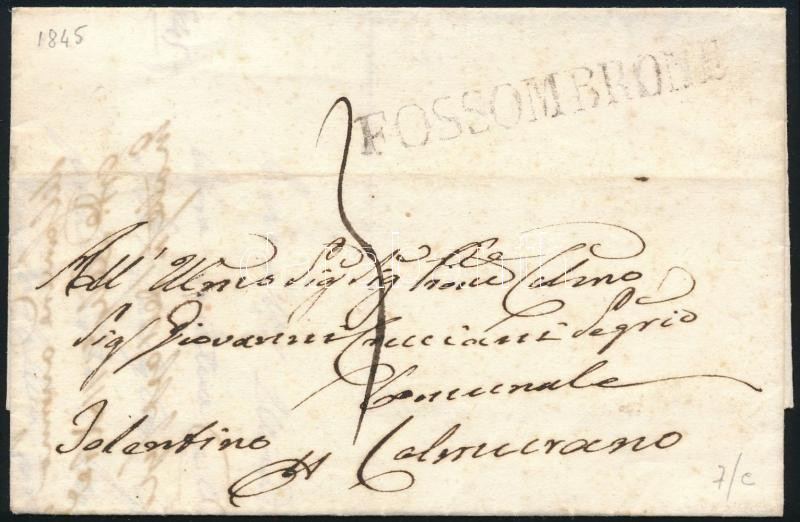 1845
FOSSOMBRONE
All' Illmo Sig Sig Prone Colmo
Sig Giovanni Cruciani Segrio
Comunale
Tolentino Colmurano
7/c